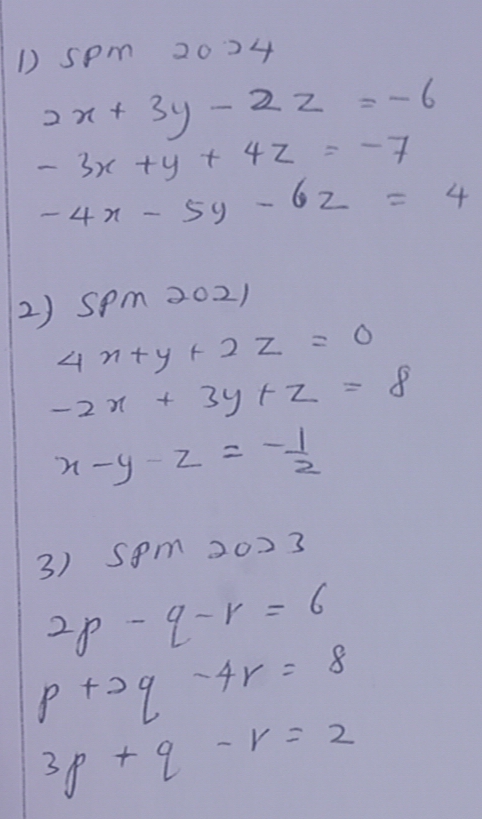 1) SPM 2024
2x + 3y - 2z = -6
- 3x + y + 4z = -7
- 4x - 5y - 6z = 4
2) SPM 2021
4x + y + 2z = 0
-2x + 3y + z = 8
x - y - z = -1/2
3) SPM 2023
2p - q - r = 6
p + 2q - 4r = 8
3p + q - r = 2